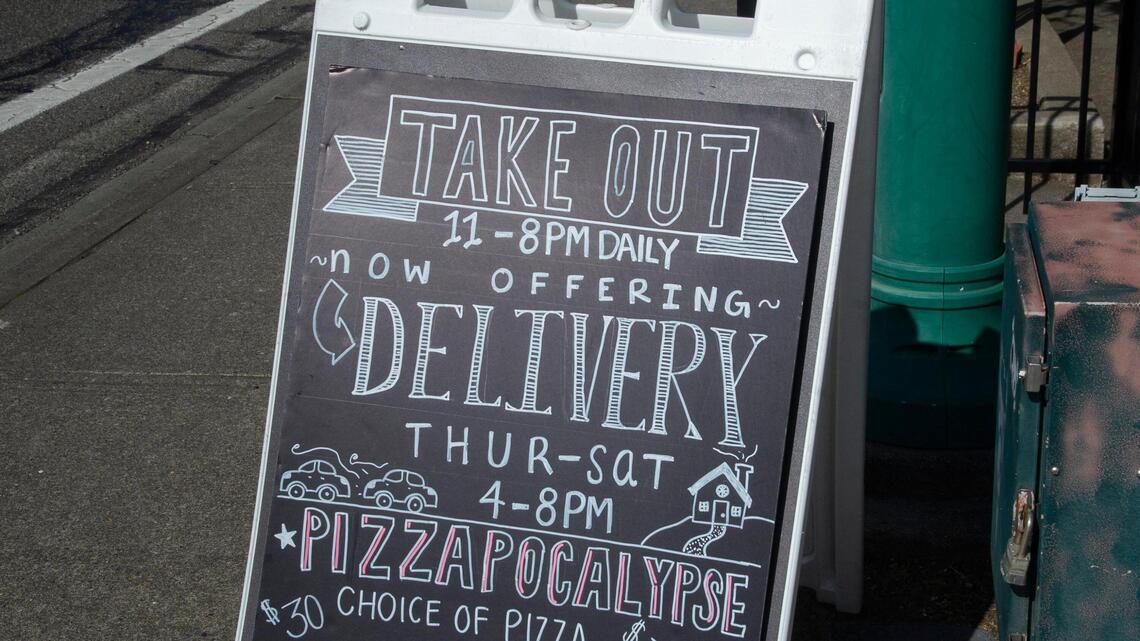 TAKE OUT
11-8PM DAILY
~NOW OFFERING~
DELIVERY
THUR-SAT
4-8PM
PIZZAPOCALYPSE
$30 CHOICE OF PIZZA $